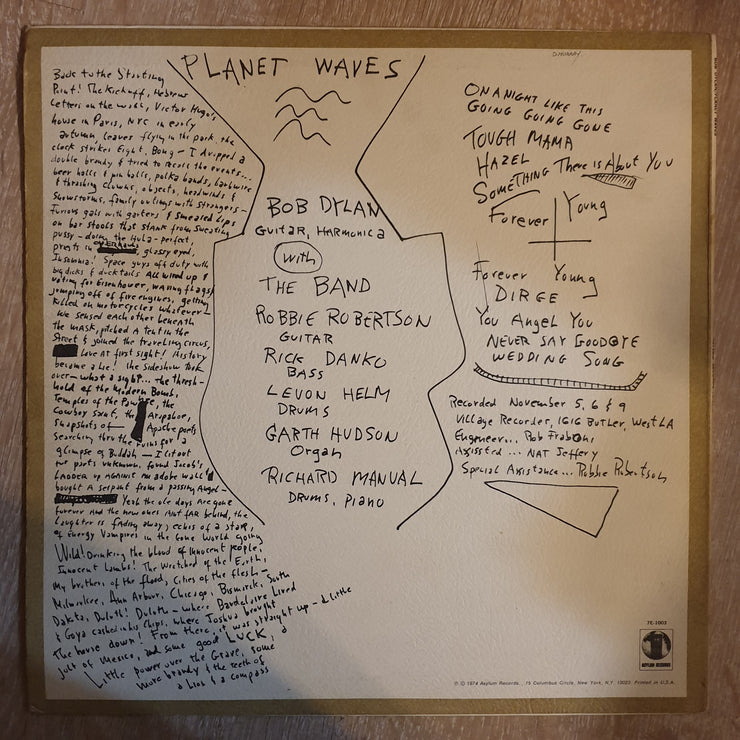 PLANET WAVES
Back to the Starting
Point! The Kickoff, Hebrew
Letters on the wall, Victor Hugo's
house in Paris, NYC in early
autumn, leaves flying in the park, the
clock strikes Eight, Bong - I dropped a
double brandy & tried to recall the events...
beer halls & pin balls, polka bands, barbwire
& thrashing clowns, objects, headwinds &
Snowstorms, family outings with strangers -
Furious gals with garters & smeared Lips
on bar stools that stank from sweating
pussy - doing the Hula - perfect,
priests in OVERHAULS glassy eyed,
Insomnia! Space guys off duty with
big dicks & ducktails All wired up &
voting for Eisenhower, waving flags &
jumping off of fire engines, getting
Killed on motorcycles whatever -
We sensed each other beneath
the mask, pitched a tent in the
Street & joined the traveling circus,
Love at first sight! History
became a lie! the sideshow took
over - what a sight... the thresh-
hold of the Modern Bomb,
Temples of the Pawnee, the
Cowboy saint, the Arapahoe,
Snapshots of Apache poets
Searching thru the ruins for a
glimpse of Buddah - I lit out
for parts unknown, found Jacob's
Ladder up against an adobe wall &
bought a serpent from a passing Angel -
Yeah the ole days Are gone
forever And the new ones Aint far behind, the
Laughter is fading away, echos of a star,
of Energy Vampires in the Gone World going
Wild! Drinking the blood of innocent people,
Innocent Lambs! The Wretched of the Earth,
My brothers of the flood, Cities of the flesh -
Milwaukee, Ann Arbor, Chicago, Bismarck, South
Dakota, Duluth! Duluth - where Baudelaire Lived
& Goya cashed in his Chips, where Joshua brought
the house down! From there, it was straight up - a little
jolt of Mexico, and some good LUCK, a
Little power over the Grave, some
more brandy & the teeth of
a Lion & a compass
BOB DYLAN
GUITAR, HARMONICA
with
THE BAND
ROBBIE ROBERTSON
GUITAR
RICK DANKO
BASS
LEVON HELM
DRUMS
GARTH HUDSON
Organ
RICHARD MANUAL
DRUMS, PIANO
ON A NIGHT LIKE THIS
GOING GOING GONE
TOUGH MAMA
HAZEL
SOMETHING There is About You
Forever Young
Forever Young
DIRGE
You Angel You
NEVER SAY GOODBYE
WEDDING SONG
Recorded November 5, 6 & 9
Village Recorder, 1616 Butler, West LA
Engineer... Rob Fraboni
Assisted... NAT Jeffery
Special Assistance... Robbie Robertson
7E-1003
ASYLUM RECORDS
℗ © 1974 Asylum Records, 15 Columbus Circle, New York, N.Y. 10023 Printed in U.S.A.